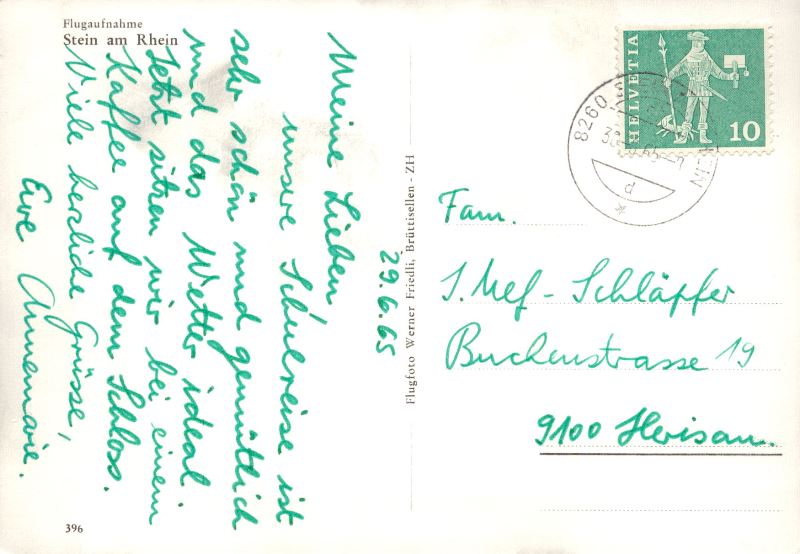 Flugaufnahme
Stein am Rhein
29.6.65
Meine Lieben
unsere Schulreise ist
sehr schön und gemütlich
und das Wetter ideal.
Jetzt sitzen wir bei einem
Kaffee auf dem Schloss.
Viele herzliche Grüsse,
Eure Annemarie.
396
Flugfoto Werner Friedli, Brüttisellen - ZH
HELVETIA
10
8260
RHEIN
65
d
Fam.
J. Nef - Schläpfer
Buchenstrasse 19
9100 Herisau.